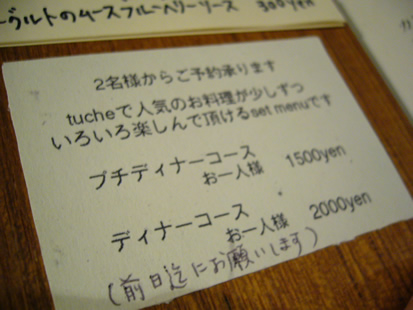 ーグルトのムースブルーベリーソース 300yen
2名様からご予約承ります
tucheで人気のお料理が少しずつ
いろいろ楽しんで頂けるset menuです
プチディナーコース
お一人様 1500yen
ディナーコース
お一人様 2000yen
(前日迄にお願いします)